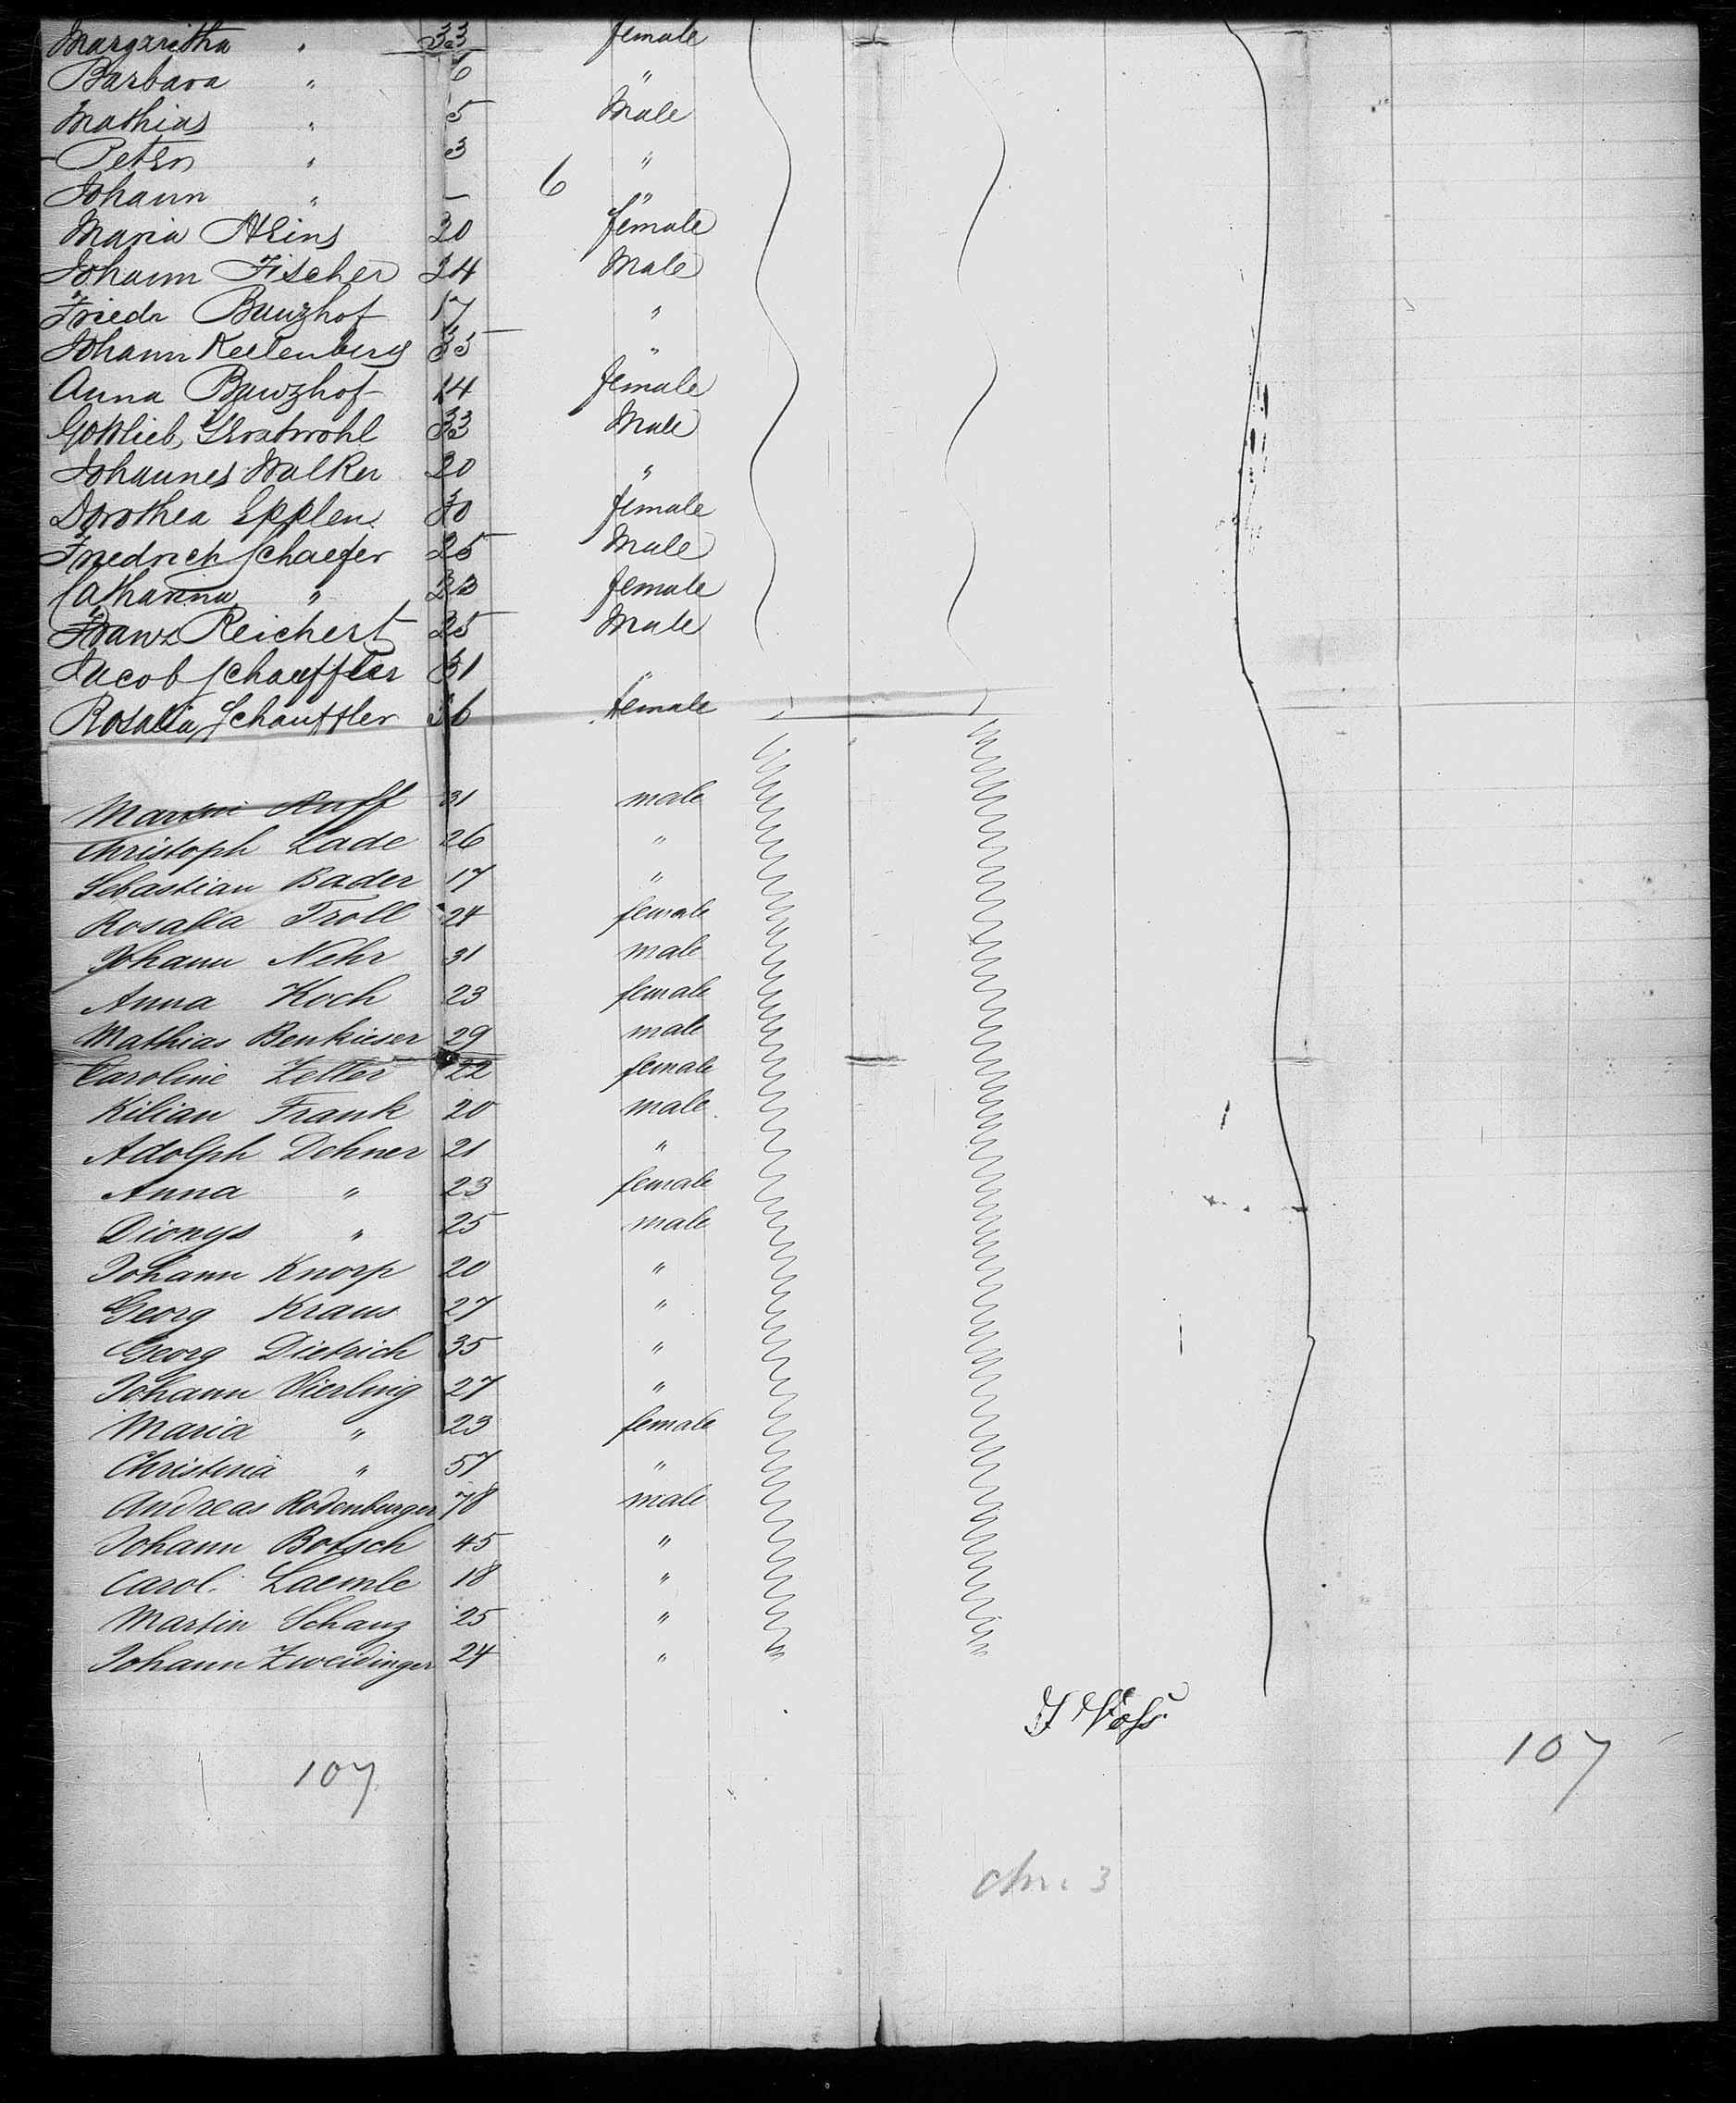 Margaritha " 33 female
Barbara " 6 "
Mathias " 5 Male
Peter " 3 "
Johann " — 6 "
Maria 20 female
Johann Fischer 24 Male
Friedr Bauzhof 17 "
Johann Kellenberg 35 "
Anna Bauzhof 14 female
Gottlieb 33 Male
Johannes Walker 20 "
Dorothea Epplen 30 female
Friedrich Schaefer 25 Male
Catharina " 23 female
Franz Reichert 25 Male
Jacob Schauffler 31 "
Rosalia Schauffler 36 female
Martin Ruff 31 male
Christoph Lade 26 "
Sebastian Bader 17 "
Rosalia Troll 24 female
Johann Nehr 31 male
Anna Koch 23 female
Mathias Benkieser 29 male
Caroline Zeller 22 female
Kilian Frank 20 male
Adolph Dehner 21 "
Anna " 23 female
Dionys " 25 male
Johann Knorp 20 "
Georg Kraus 27 "
Georg Dietrich 35 "
Johann Vierling 27 "
Maria " 23 female
Christina " 57 "
Andreas Rodenburger 78 male
Johann Botsch 45 "
Carol. Laemle 18 "
Martin Schanz 25 "
Johann Zweidinger 24 "
Voss
107 107
3